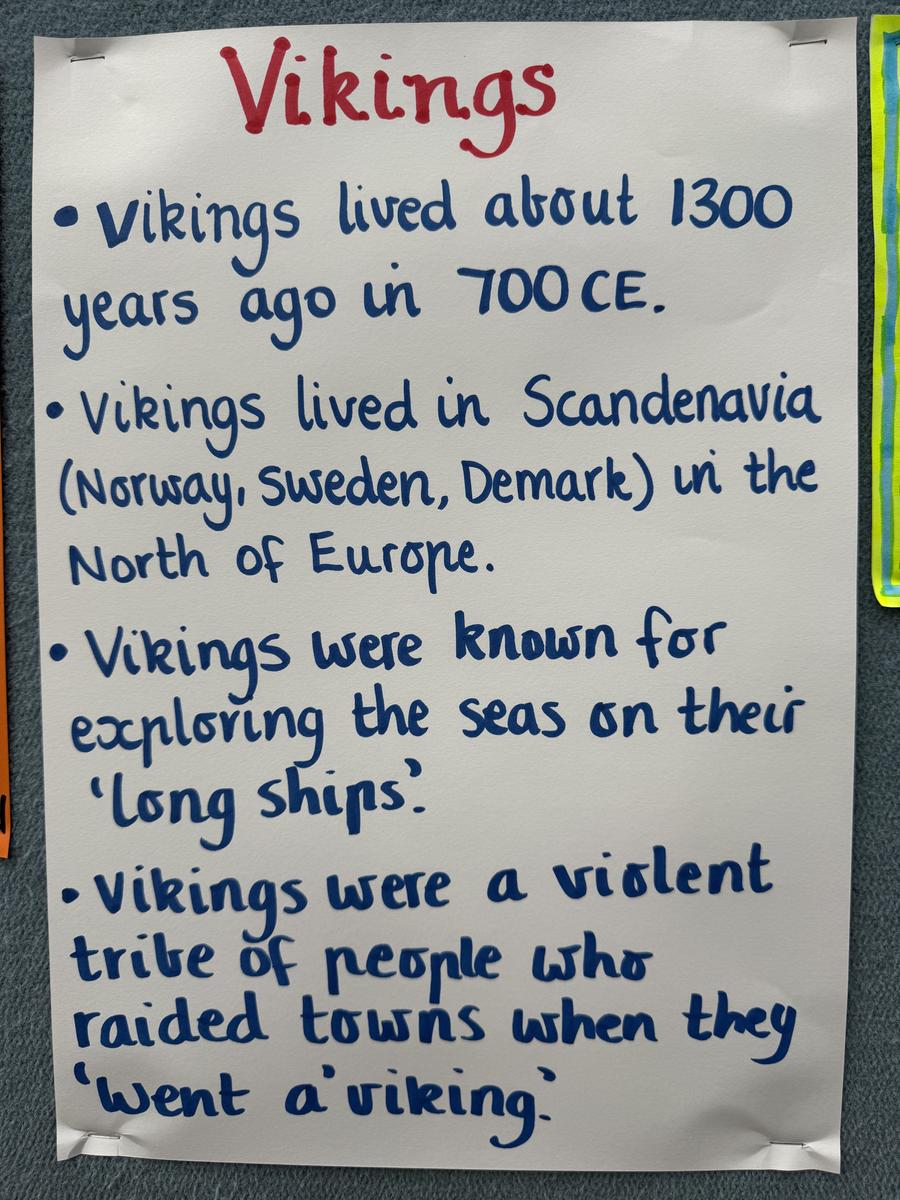 Vikings
• Vikings lived about 1300
years ago in 700 CE.
• Vikings lived in Scandenavia
(Norway, Sweden, Demark) in the
North of Europe.
• Vikings were known for
exploring the seas on their
'long ships'.
• Vikings were a violent
tribe of people who
raided towns when they
'went a'viking'.